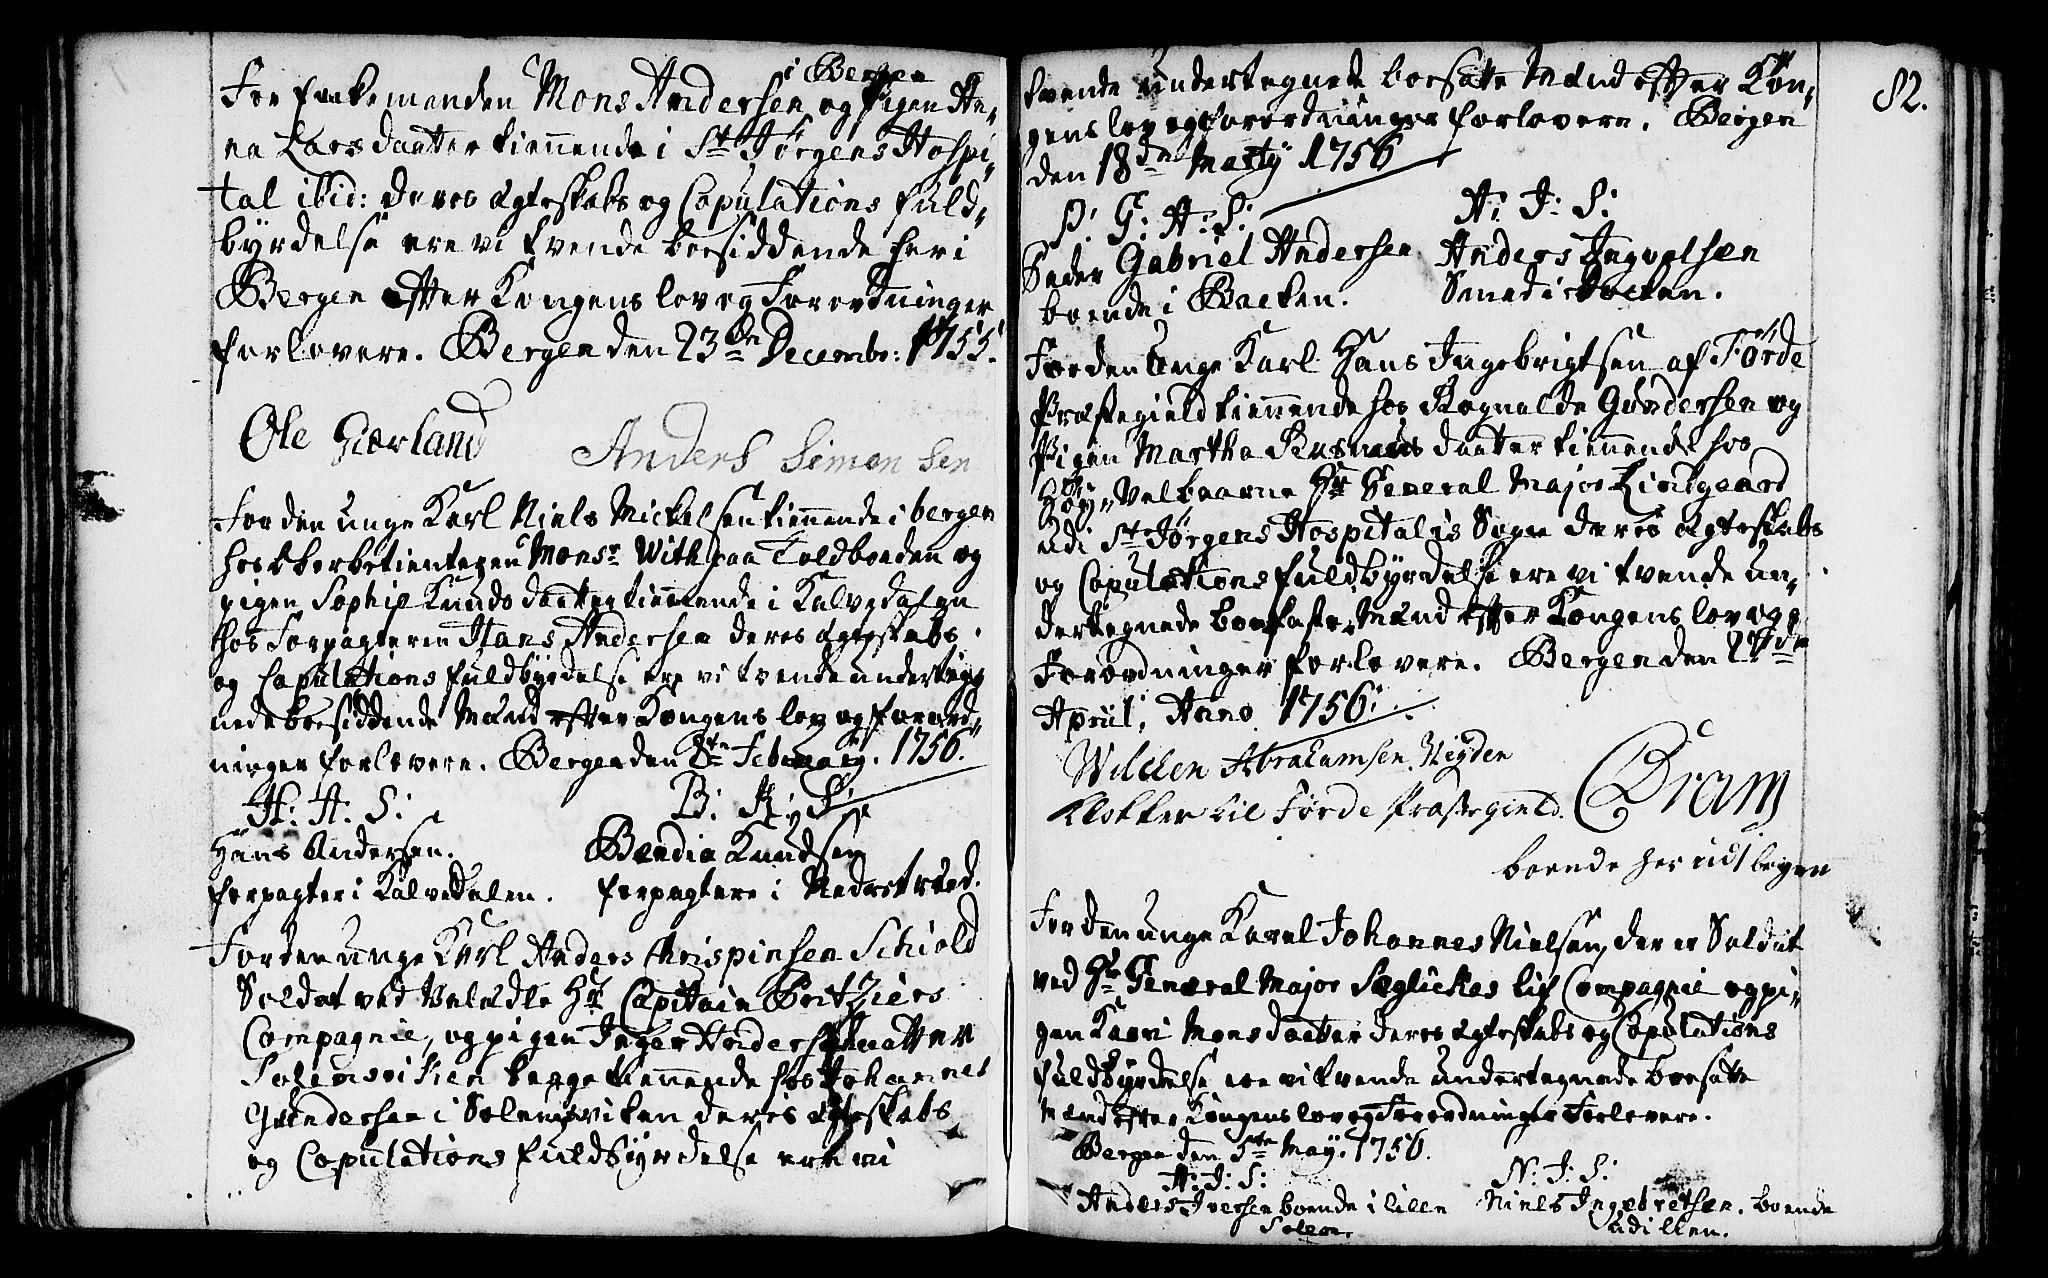 i Bergen
For Enkemanden Mons Andersen og Pigen An-
na Lars daatter tiennende i St Jörgens Hospi-
tal ibid: deres ægteskabs og Copulations fuld-
byrdelse ere vi tvende boesiddende her i
Bergen efter Kongens lov og Forordninger
forlovere. Bergen den 23de Decembr: 1755.
Ole Giærland Anders Simonsen
For den unge Karl Niels Mickelsen tiennende i bergen
hos Monsr With paa Toldboeden og
pigen Sophie Knuds daatter tiennende i Kalvedalen
hos Forpagteren Hans Andersen deres ægteskabs
og Copulations fuldbyrdelse ere vi tvende underteg-
nede boesiddende Mænd efter Kongens lov og forord-
ninger forlovere. Bergen den 8de February. 1756.
H: A: S: B: K: S:
Hans Andersen. Bendix Knudsen
forpagter i Kalvedalen. forpagtere i
For den unge Karl Anders Chrispinsen Schiold
Soldat ved Velædle Hr Capitain Fritzners
Compagnie, og pigen Inger Anders daatter
Solemsviken begge tiennende hos Johannes
Gundersen i Solemsviken deres ægteskabs
og Copulations fuldbyrdelse ere vi
82.
tvende undertegnede boesatte Mænd efter Kon-
gens lov og forordninger forlovere. Bergen
den 18de Marty 1756
G: A: S: A: I: S:
Gabriel Andersen Anders Ingvolsen
boende i Backen. i Backen.
For den unge Karl Hans Ingebrigtsen af Förde
Præstegield tiennende hos Rognalde Gundersen og
Pigen Martha Rasmus daatter tiennende hos
Höy-Velbaarne Hr General Major Lindgaard
udi St Jörgens Hospitalis Sogn deres ægteskabs
og Copulations fuldbyrdelse ere vi tvende un-
dertegnede boesatte Mænd efter Kongens lov og
Forordninger forlovere. Bergen den 27de
Apriil, Anno 1756.
Willen Abrahamsen Neyden
klokker til Förde Præstegield. Bram
boende her udi bergen
For den unge Karel Johannes Nielsen, der er Soldat
ved Hr General Major Seglickes lif Compagnie og pi-
gen Kaari Mons daatter deres ægteskabs og Copulations
fuldbyrdelse ere vi tvende undertegnede boesatte
Mænd efter Kongens lov og Forordninger Forlovere.
Bergen den 5te May. 1756.
A: I: S: N: I: S:
Anders Iversen boende i lille Niels Ingebretsen. boende
udi